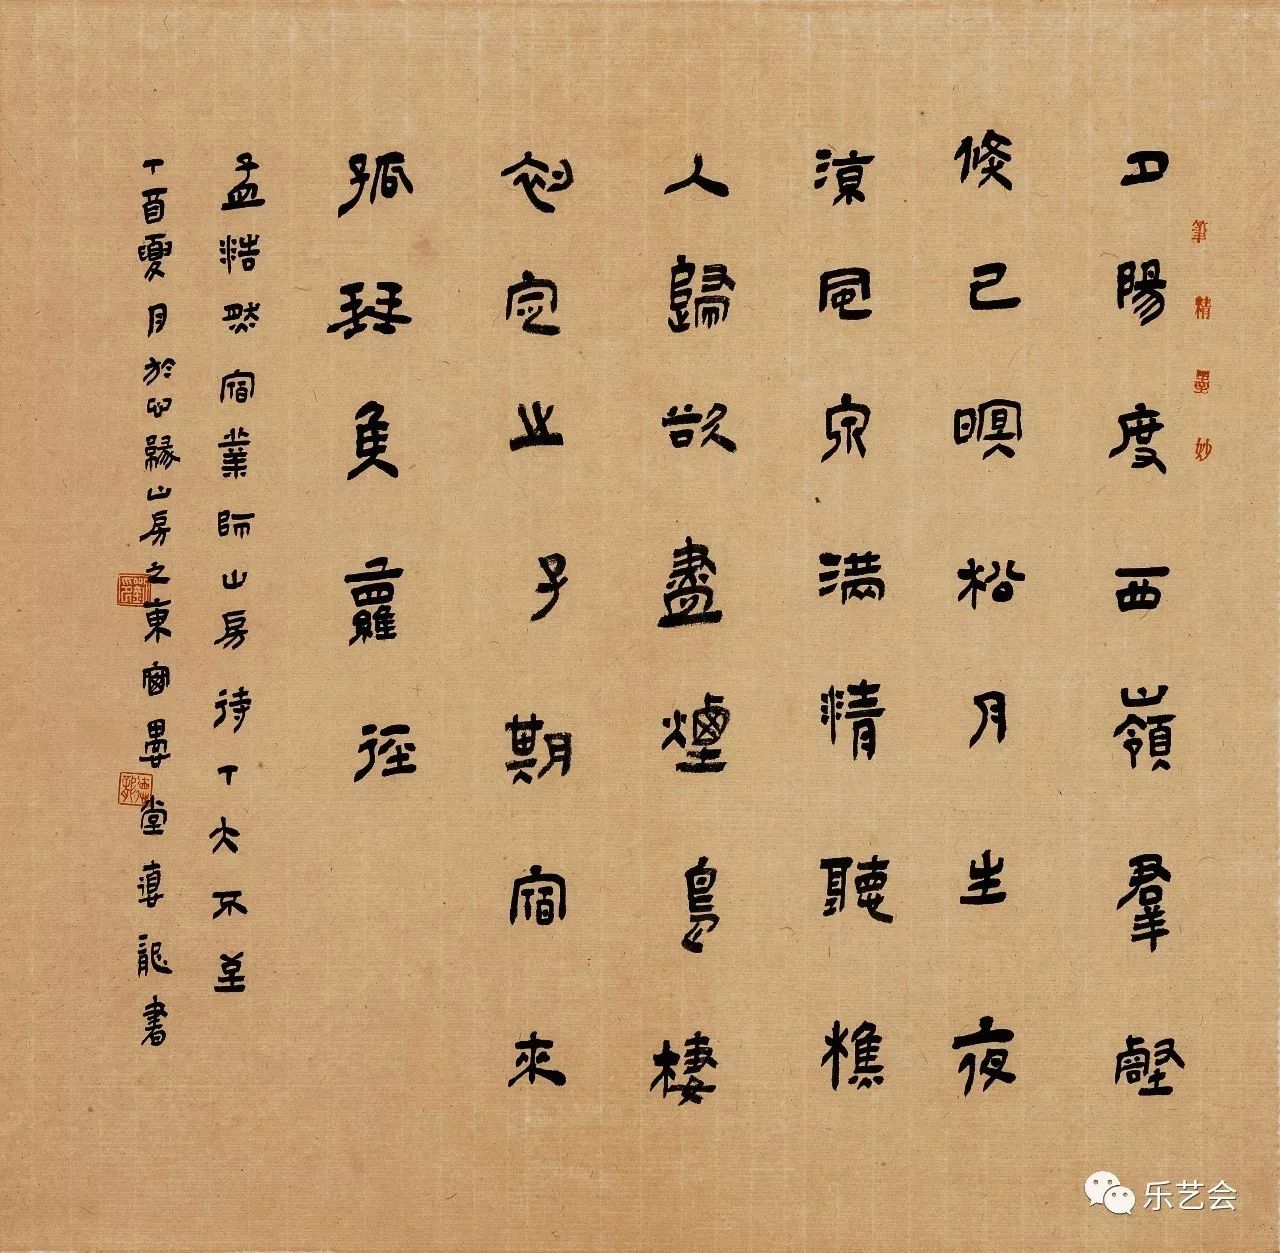 筆精墨妙
夕陽度西嶺羣壑
倏已暝松月生夜
涼風泉滿清聽樵
人歸欲盡煙鳥棲
初定之子期宿來
孤琴候蘿徑
孟浩然宿業師山房待丁大不至
丁酉夏月於心緣山房之東窗堂龍書
乐艺会